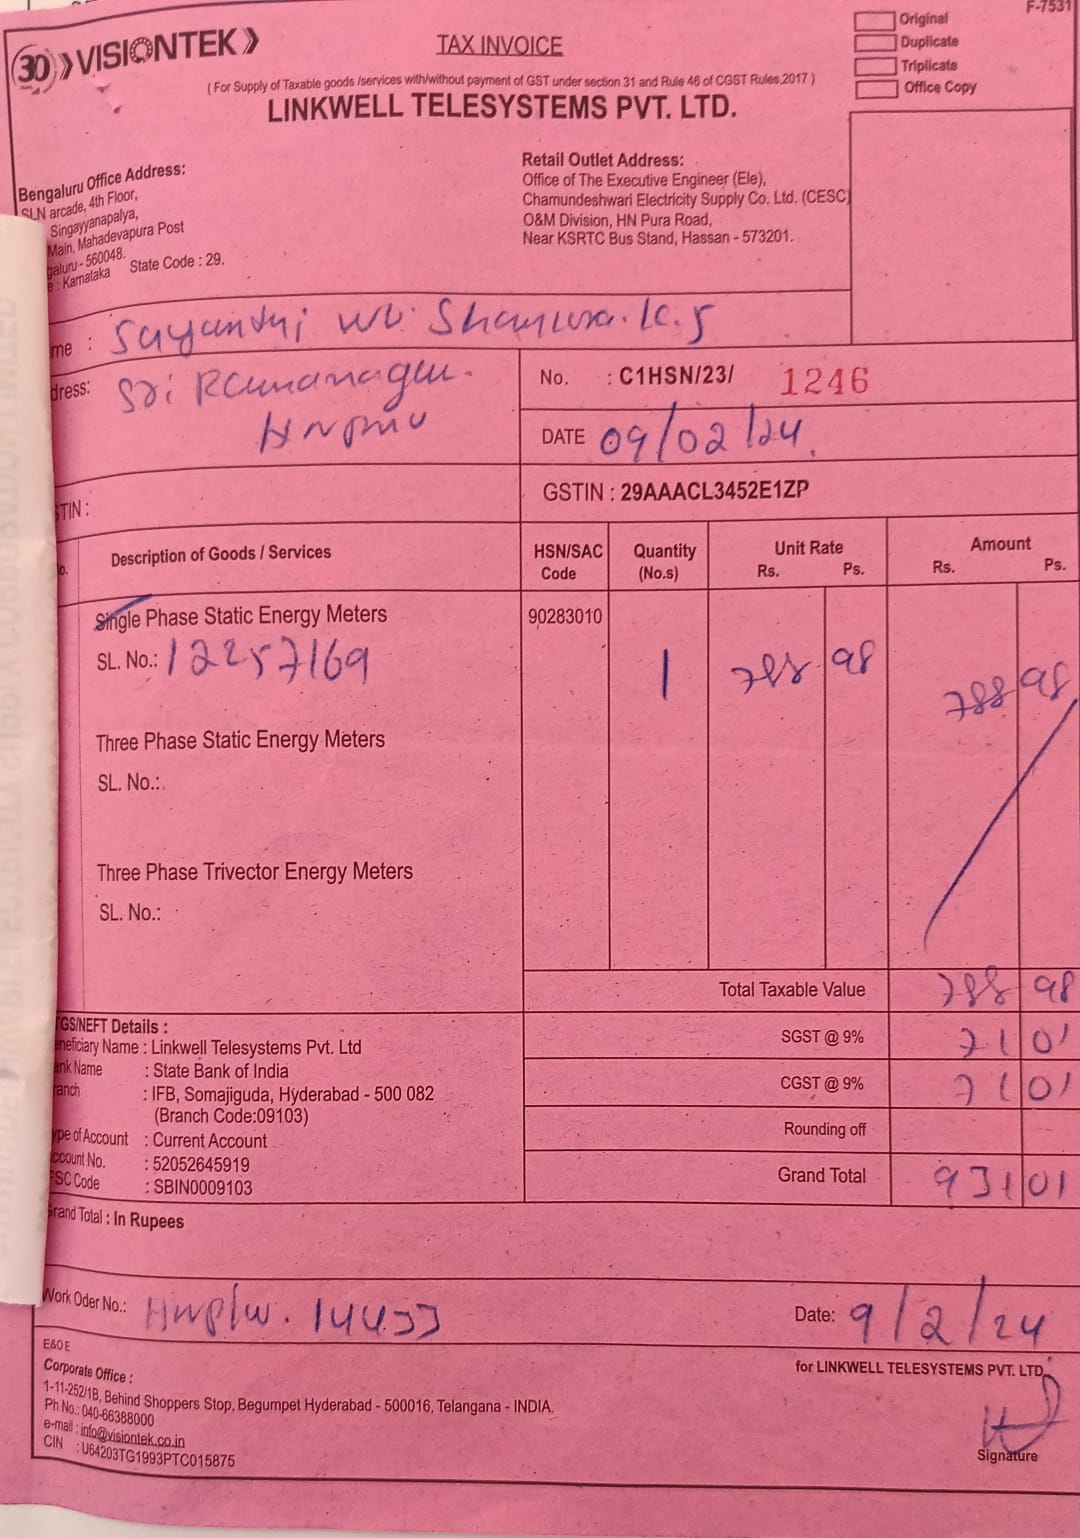 F-7531
Original
Duplicate
Triplicate
Office Copy
30 VISIONTEK
TAX INVOICE
( For Supply of Taxable goods /services with/without payment of GST under section 31 and Rule 46 of CGST Rules,2017 )
LINKWELL TELESYSTEMS PVT. LTD.
Bengaluru Office Address:
SLN arcade, 4th Floor,
Singayyanapalya,
Main, Mahadevapura Post
galuru - 560048.
e : Karnataka State Code : 29.
Retail Outlet Address:
Office of The Executive Engineer (Ele),
Chamundeshwari Electricity Supply Co. Ltd. (CESC)
O&M Division, HN Pura Road,
Near KSRTC Bus Stand, Hassan - 573201.
me :
dress: Sri Ramanagar.
No. : C1HSN/23/ 1246
DATE 09/02/24.
STIN :
GSTIN : 29AAACL3452E1ZP
o. Description of Goods / Services HSN/SAC Code Quantity (No.s) Unit Rate Rs. Ps. Amount Rs. Ps.
Single Phase Static Energy Meters 90283010
SL. No.: 12257169 1 788 98 788 98
Three Phase Static Energy Meters
SL. No.:
Three Phase Trivector Energy Meters
SL. No.:
Total Taxable Value 788 98
SGST @ 9% 71 01
CGST @ 9% 71 01
Rounding off
Grand Total 931 01
TGS/NEFT Details :
eneficiary Name : Linkwell Telesystems Pvt. Ltd
ank Name : State Bank of India
ranch : IFB, Somajiguda, Hyderabad - 500 082
(Branch Code:09103)
ype of Account : Current Account
ccount No. : 52052645919
FSC Code : SBIN0009103
Grand Total : In Rupees
Work Oder No.: 14433
Date: 9/2/24
E&OE
Corporate Office :
1-11-252/1B, Behind Shoppers Stop, Begumpet Hyderabad - 500016, Telangana - INDIA.
Ph No.: 040-66388000
e-mail : info@visiontek.co.in
CIN : U64203TG1993PTC015875
for LINKWELL TELESYSTEMS PVT. LTD.
Signature